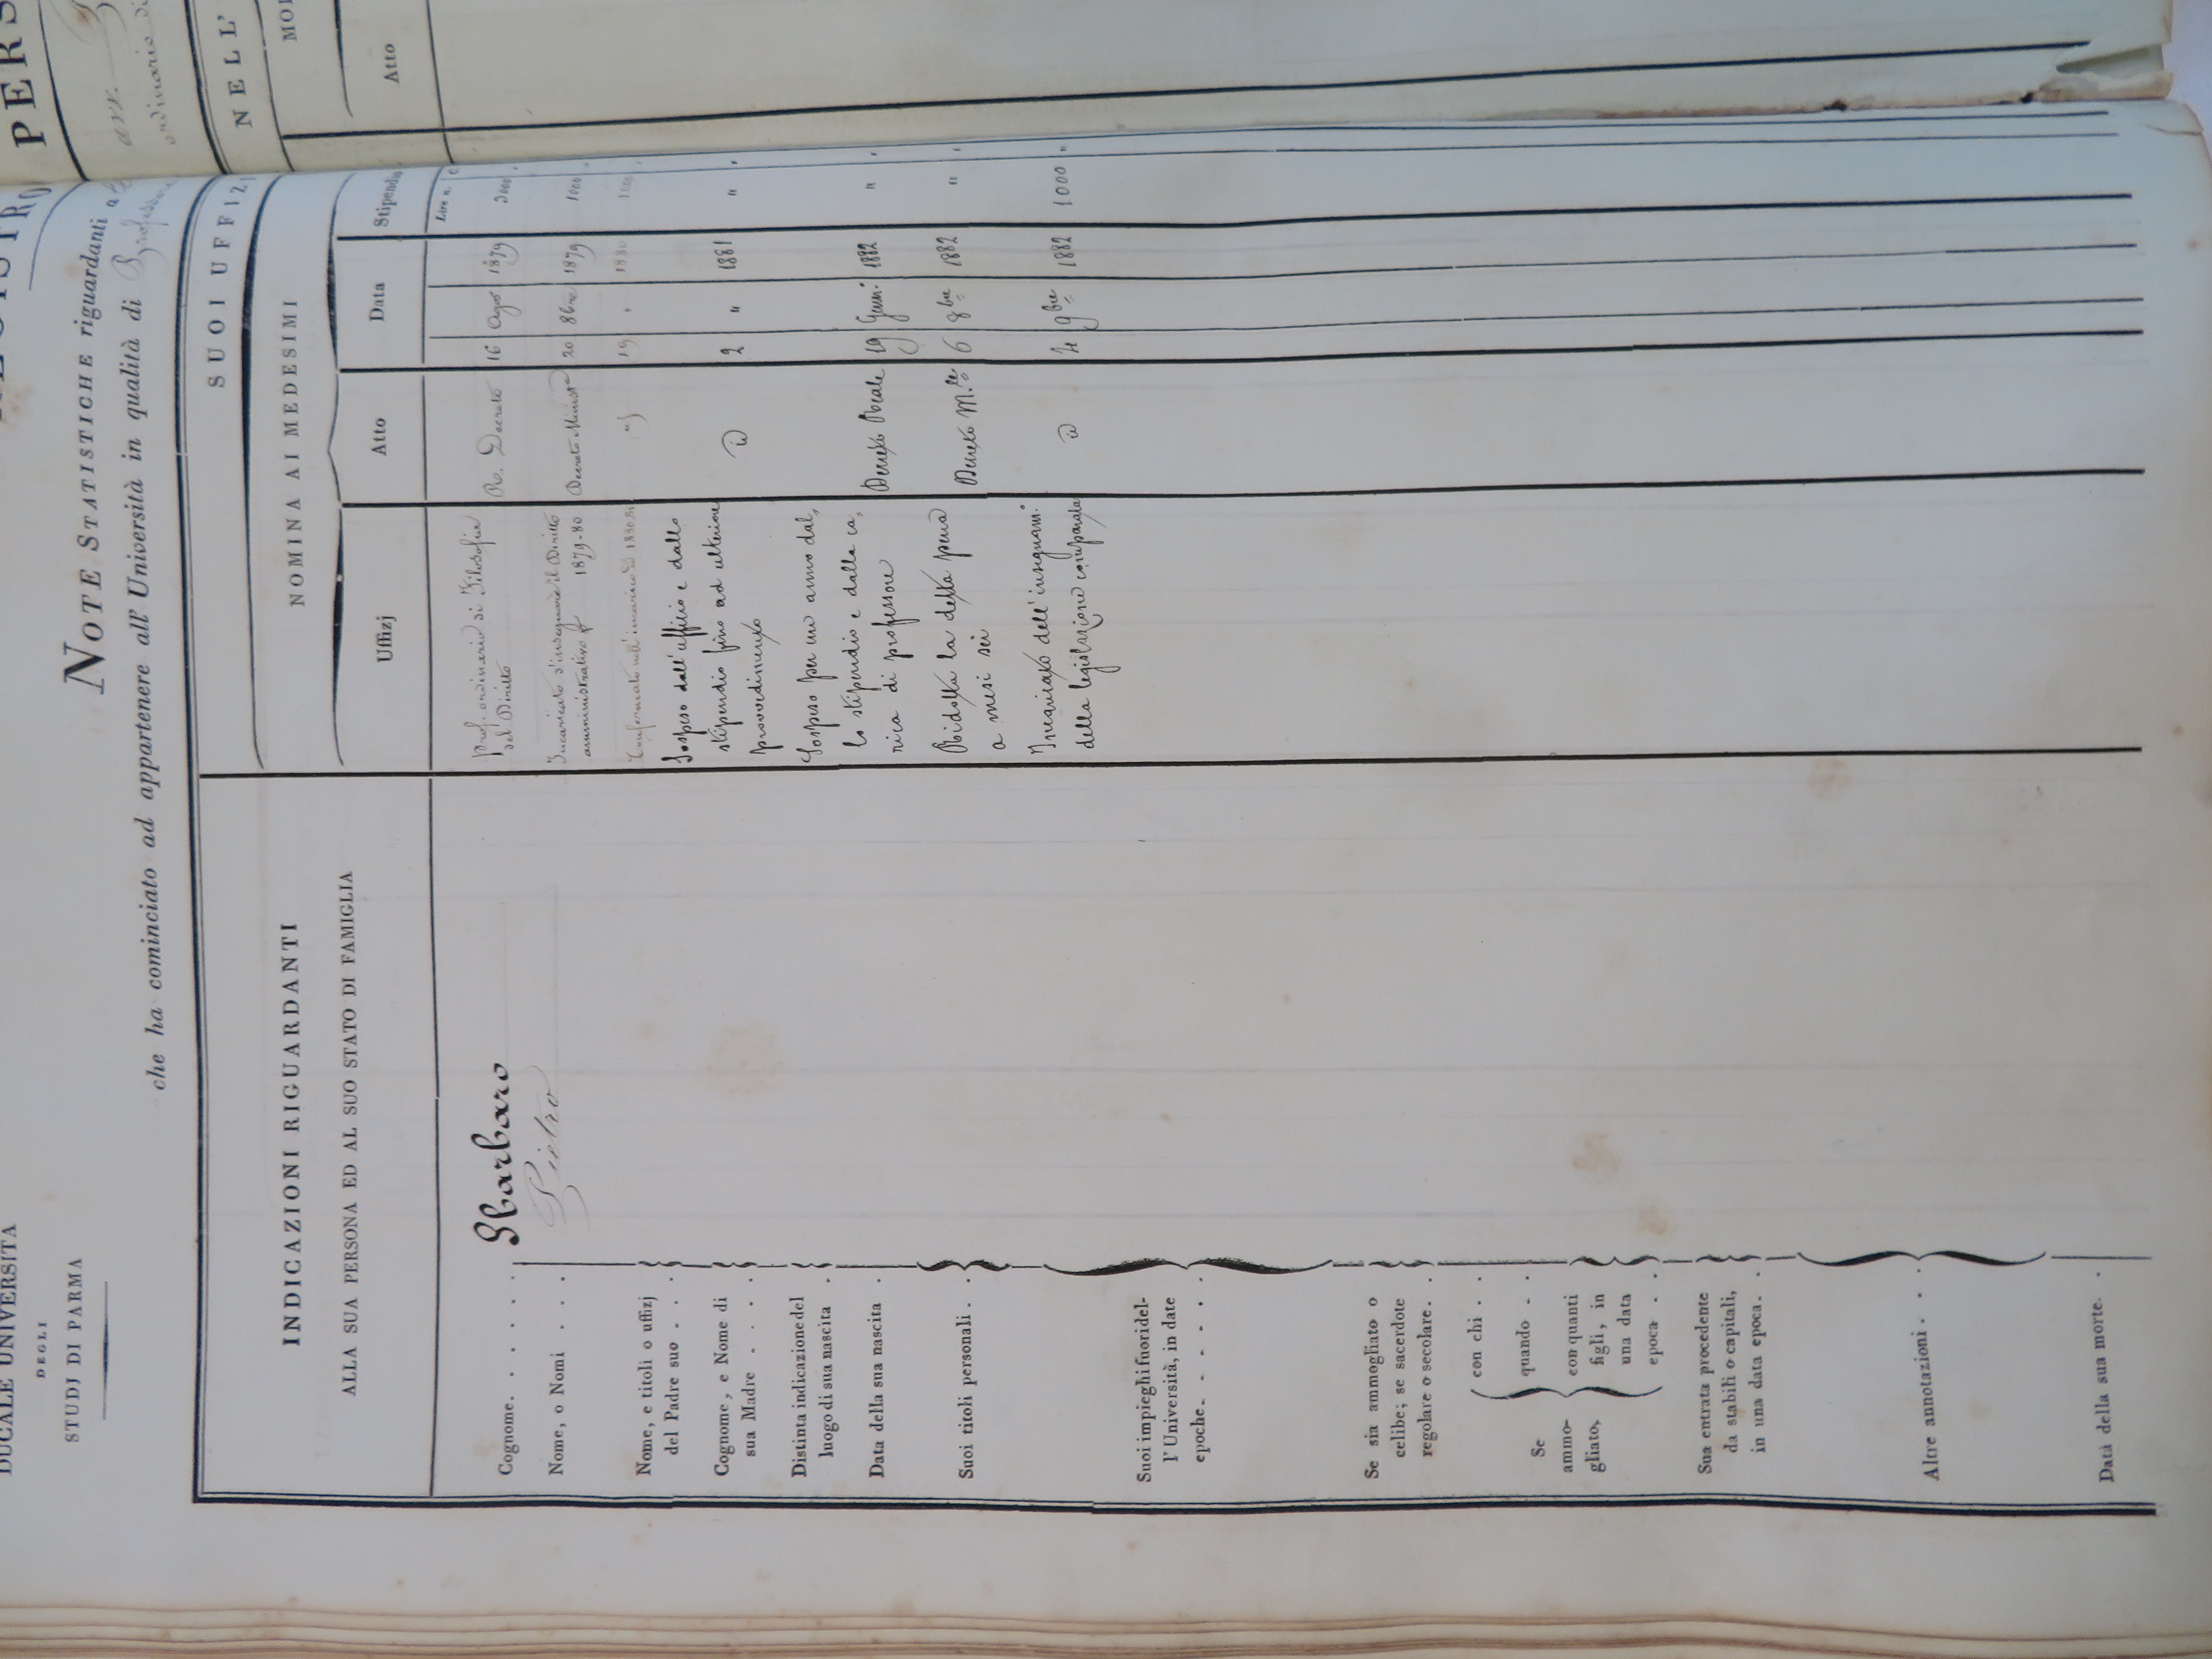 DUCALE UNIVERSITA
DEGLI
STUDJ DI PARMA
PERS
NOTE STATISTICHE riguardanti
che ha cominciato ad appartenere all' Università in qualità di Professore
ordinario di
INDICAZIONI RIGUARDANTI
ALLA SUA PERSONA ED AL SUO STATO DI FAMIGLIA
SUOI UFFIZJ
NELL'
NOMINA AI MEDESIMI
Uffizj
Atto
Data
Stipendio
Atto
Lire n. c
Cognome. . . . . . Sbarbaro
Nome, o Nomi . . . Pietro
Nome, e titoli o uffizj
del Padre suo . . .
Cognome, e Nome di
sua Madre . . . .
Distinta indicazione del
luogo di sua nascita .
Data della sua nascita .
Suoi titoli personali. .
Suoi impieghi fuori del-
l' Università, in date
epoche. . . . . .
Se sia ammogliato o
celibe; se sacerdote
regolare o secolare. .
Se
ammo-
gliato,
con chi . .
quando . .
con quanti
figli, in
una data
epoca . .
Sua entrata procedente
da stabili o capitali,
in una data epoca. .
Altre annotazioni. . .
Data della sua morte. .
Prof. ordinario di Filosofia
del Diritto
R. Decreto 16 Agos 1879 3000 "
Incaricato d'insegnare il Diritto
amministrativo pf 1879-80
Decreto Minist 20 8bre 1879 1000 "
Confermato nell'incarico pel 1880.81
19 " 1880 1000 "
Sospeso dall'uffizio e dallo
stipendio fino ad ulteriore
provvedimento
id 2 " 1881 " "
Sospeso per un anno dal,
lo stipendio e dalla ca,
rica di professore
Decreto Reale 19 Giun. 1882 " "
Ridotta la detta pena
a mesi sei
Decreto M.le 6 8bre 1882 " "
Incaricato dell'insegnam.
della legislazione comparata
id 4 9bre 1882 1000 "